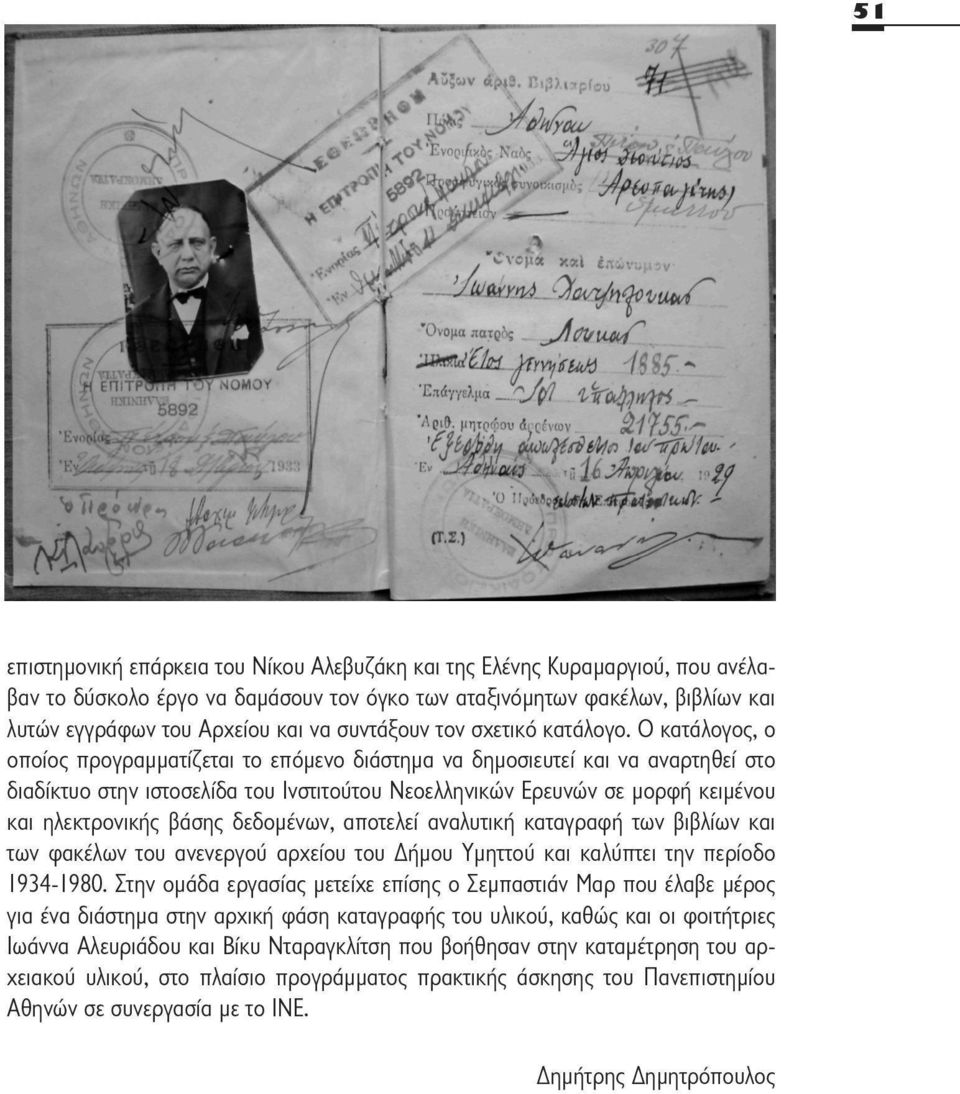 51
307
71
Αὔξων ἀριθ. Βιβλιαρίου
Πόλις Ἀθῆναι
Ἐνοριακὸς Ναὸς Ἅγιος Διονύσιος
Προσφυγικὸς συνοικισμὸς Ἀρεοπαγίτης
ΕΘΕΩΡΗΘΗ
Η ΕΠΙΤΡΟΠΗ ΤΟΥ ΝΟΜΟΥ
5892
Ἐνορίας
Ἐν
Ὄνομα καὶ ἐπώνυμον
Ἰωάννης Χατζηλουκας
Ὄνομα πατρὸς Λουκας
Ἔτος γεννήσεως 1885.-
Ἐπάγγελμα ὑπάλληλος
Ἀριθ. μητρώου ἀρρένων 21755.-
Ἐν Ἀθήναις τῇ 16 Ἀπριλίου 1929
(Τ.Σ.)
Η ΕΠΙΤΡΟΠΗ ΤΟΥ ΝΟΜΟΥ
5892
Ἐνορίας
Ἐν τῇ 18 1933
επιστημονική επάρκεια του Νίκου Αλεβυζάκη και της Ελένης Κυραμαργιού, που ανέλα-
βαν το δύσκολο έργο να δαμάσουν τον όγκο των αταξινόμητων φακέλων, βιβλίων και
λυτών εγγράφων του Αρχείου και να συντάξουν τον σχετικό κατάλογο. Ο κατάλογος, ο
οποίος προγραμματίζεται το επόμενο διάστημα να δημοσιευτεί και να αναρτηθεί στο
διαδίκτυο στην ιστοσελίδα του Ινστιτούτου Νεοελληνικών Ερευνών σε μορφή κειμένου
και ηλεκτρονικής βάσης δεδομένων, αποτελεί αναλυτική καταγραφή των βιβλίων και
των φακέλων του ανενεργού αρχείου του Δήμου Υμηττού και καλύπτει την περίοδο
1934-1980. Στην ομάδα εργασίας μετείχε επίσης ο Σεμπαστιάν Μαρ που έλαβε μέρος
για ένα διάστημα στην αρχική φάση καταγραφής του υλικού, καθώς και οι φοιτήτριες
Ιωάννα Αλευριάδου και Βίκυ Νταραγκλίτση που βοήθησαν στην καταμέτρηση του αρ-
χειακού υλικού, στο πλαίσιο προγράμματος πρακτικής άσκησης του Πανεπιστημίου
Αθηνών σε συνεργασία με το ΙΝΕ.
Δημήτρης Δημητρόπουλος